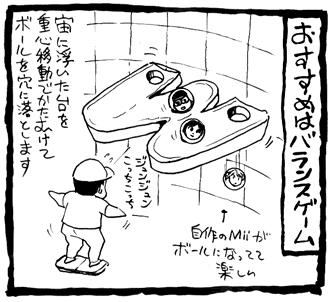 おすすめはバランスゲーム
宙に浮いた台を
重心移動でかたむけて
ボールを穴に落とします
ジュンジュン
こっちこっち
自作のMiiが
ボールになってて
楽しい